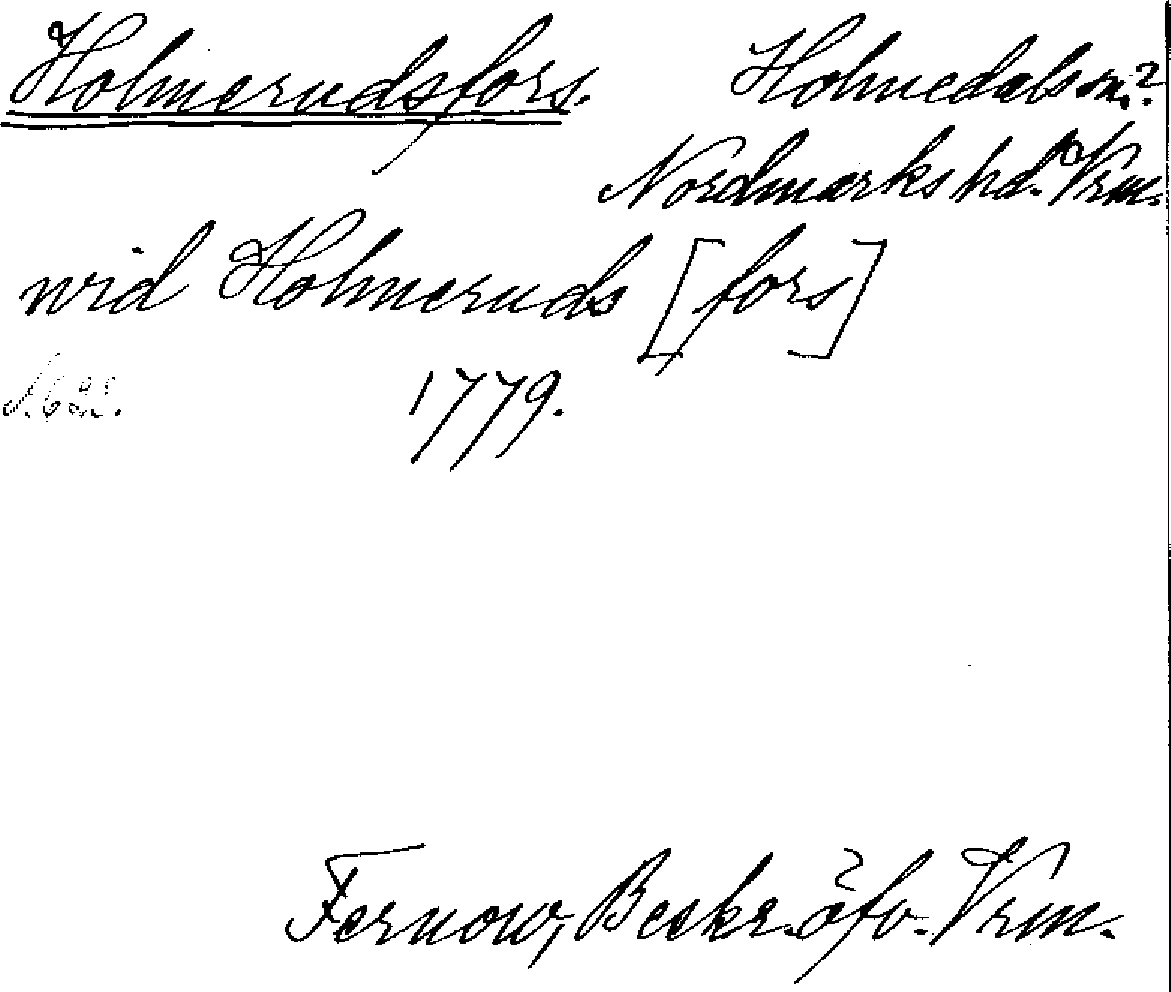 Holmerudsfors. Holmedals sn.?
Nordmarks hd. Vrm.
wid Holmeruds [fors]
1779.
Fernow, Beskr. öfv. Vrm.